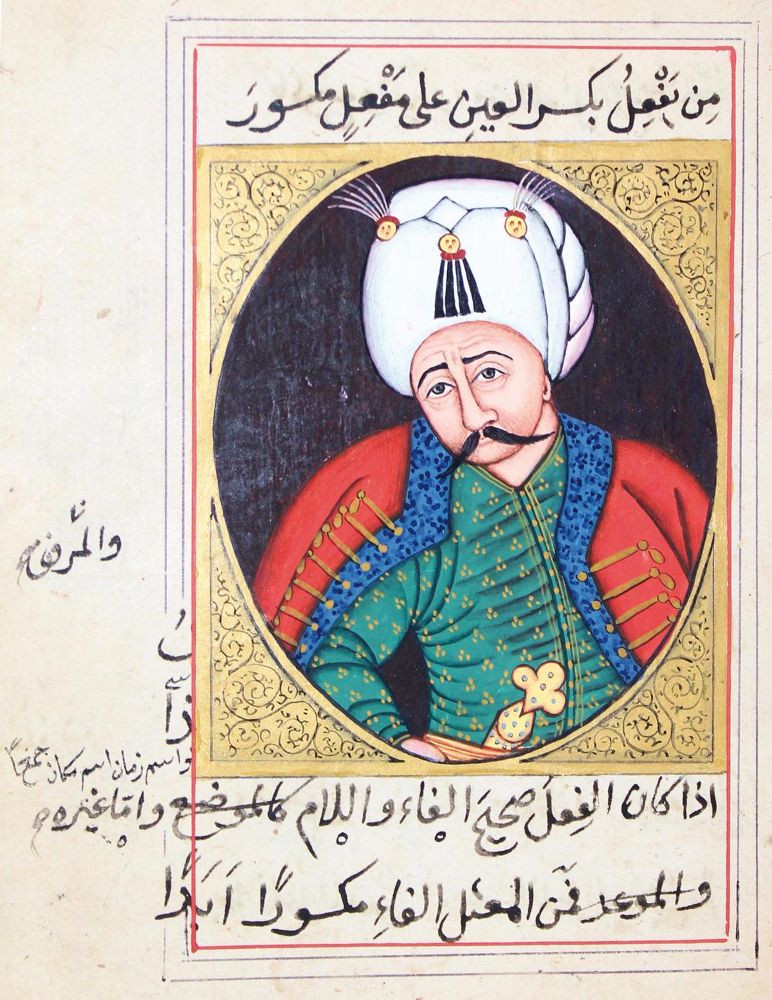 مِن يَفْعِلُ بكسر العينِ على مَفْعِلٍ مكسورَ
واسم زمان اسم مكان
اذا كان الفِعلُ صحيحَ الفاءِ واللامِ كالموضع وامّا غيره
والموعد فمن المعتل الفاءِ مكسورًا اَبَدًا